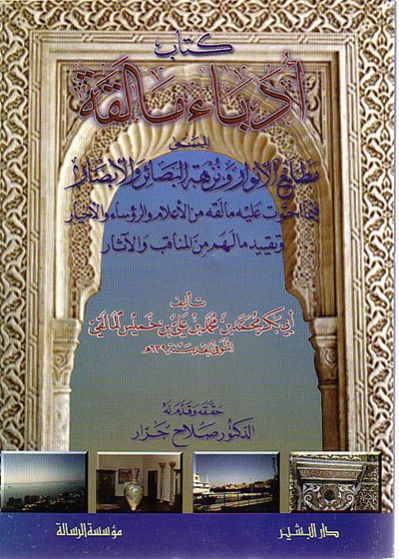 كتاب
أدباء مالقة
المسمى
مطلع الأنوار ونزهة البصائر والأبصار
فيما احتوت عليه مالقه من الأعلام والرؤساء والأخيار
وتقييد مالهم من المناقب والآثار
تأليف
أبي بكر محمد بن محمد بن علي بن خميس المالقي
المتوفى بعد سنة ٦٣٩ه
حققه وقدم له
الدكتور صلاح جرار
دار البشير
مؤسسة الرسالة